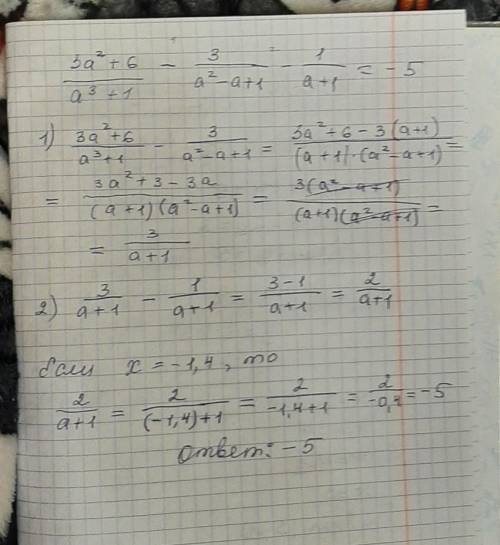 (3a²+6)/(a³+1) − 3/(a²−a+1) − 1/(a+1) = −5
1) (3a²+6)/(a³+1) − 3/(a²−a+1) = (3a²+6−3(a+1))/((a+1)·(a²−a+1)) =
= (3a²+3−3a)/((a+1)(a²−a+1)) = 3(a²−a+1)/((a+1)(a²−a+1)) =
= 3/(a+1)
2) 3/(a+1) − 1/(a+1) = (3−1)/(a+1) = 2/(a+1)
Если x = −1,4, то
2/(a+1) = 2/((−1,4)+1) = 2/(−1,4+1) = 2/(−0,4) = −5
Ответ: −5